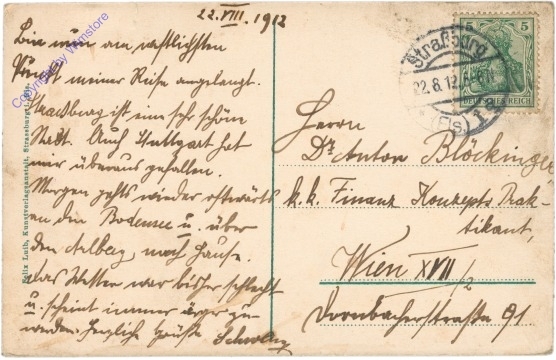 22.VIII.1912
Bin nun am westlichsten
Punkt meiner Reise angelangt.
Straßburg ist eine sehr schöne
Stadt. Auch Stuttgart hat
mir überaus gefallen.
Morgen gehts wieder ostwärts
an den Bodensee u. über
den Arlberg nach Hause.
Das Wetter war bisher schlecht
u. scheint immer ärger zu
werden. Herzliche Grüße
Herrn
Dr Anton Blöckinger
k.k. Finanz Konzepts Prak-
tikant,
Wien XVII
Dornbacherstraße 91
Straßburg
22.8.12
(Els)
5 5
DEUTSCHES REICH
Felix Luib, Kunstverlagsanstalt, Strassburg
Copyright by Wernstore